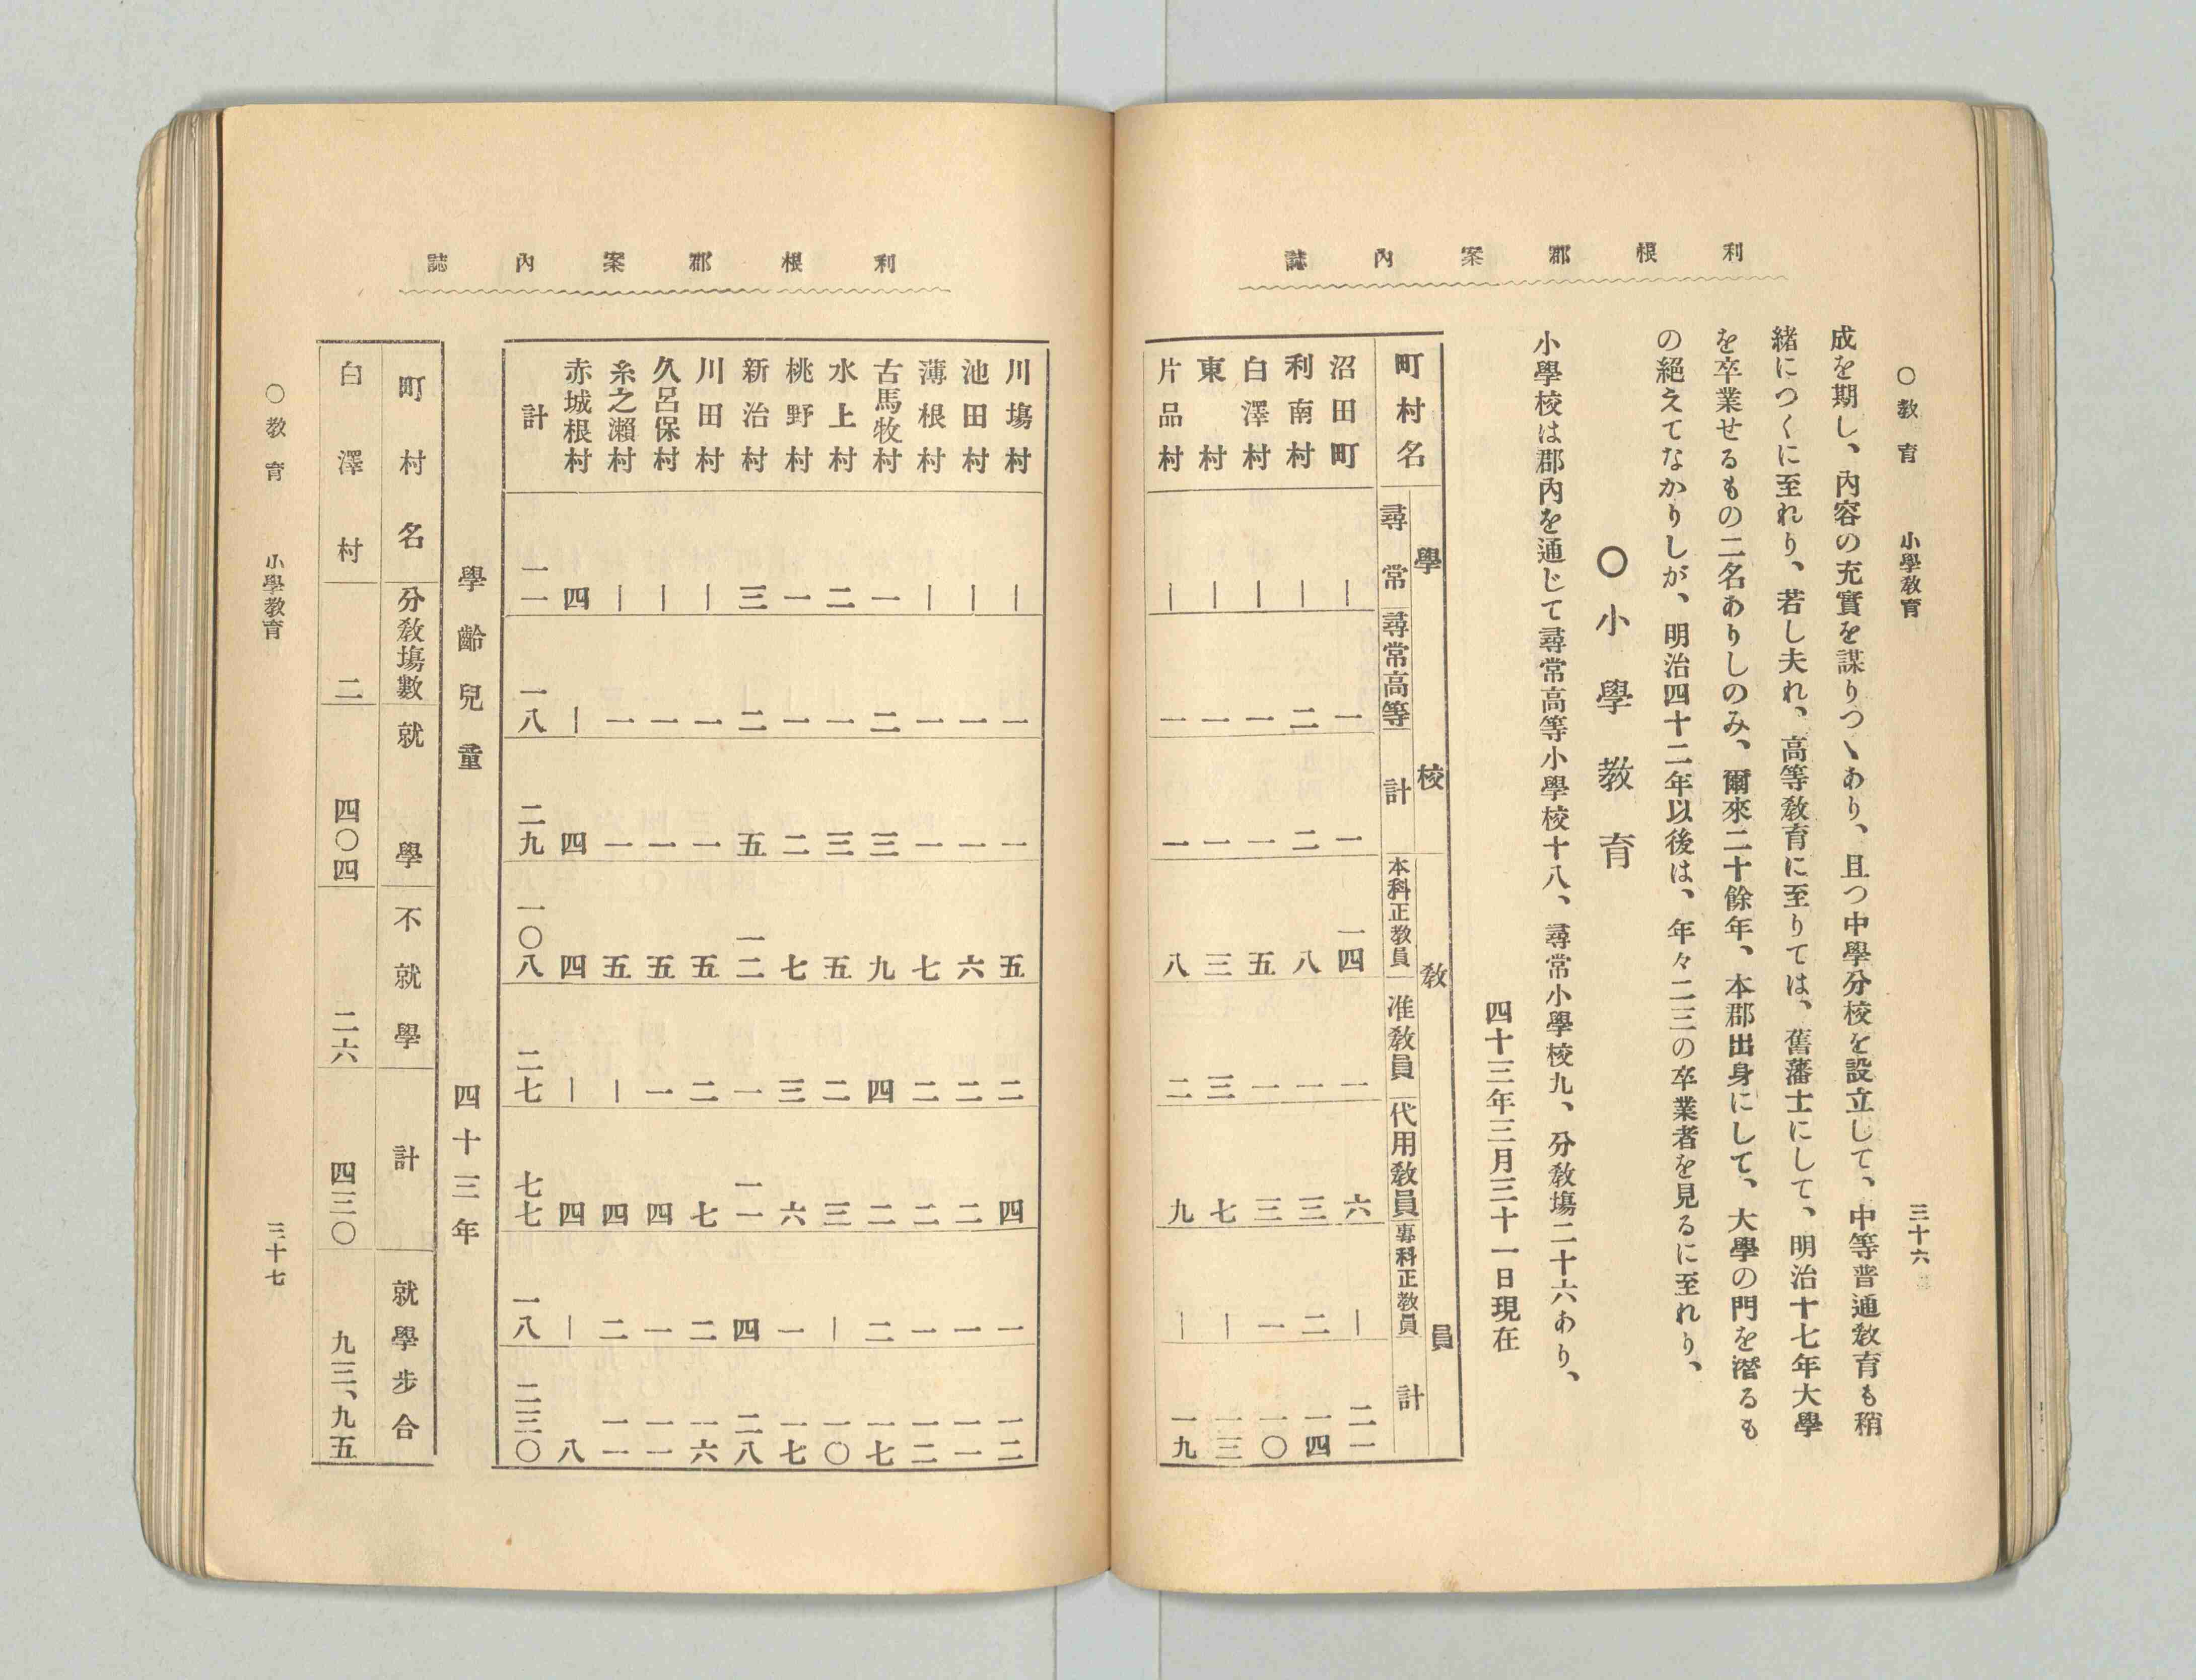 利根郡案內誌
○教育　小學教育　三十六
成を期し、內容の充實を謀りつゝあり、且つ中學分校を設立して、中等普通敎育も稍
緒につくに至れり、若し夫れ、高等敎育に至りては、舊藩士にして、明治十七年大學
を卒業せるもの二名ありしのみ、爾來二十餘年、本郡出身にして、大學の門を潜るも
の絕えてなかりしが、明治四十二年以後は、年々二三の卒業者を見るに至れり、
○小學教育
小學校は郡內を通じて尋常高等小學校十八、尋常小學校九、分敎塲二十六あり、
四十三年三月三十一日現在
學校　敎員
町村名　尋常　尋常高等　計　本科正敎員　准敎員　代用敎員　專科正敎員　計
沼田町　｜　一　一　一四　一　六　｜　二一
利南村　｜　二　二　八　一　三　二　一四
白澤村　｜　一　一　五　一　三　一　一〇
東村　｜　一　一　三　三　七　｜　一三
片品村　｜　一　一　八　二　九　｜　一九
利根郡案內誌
川塲村　｜　一　一　五　二　四　一　一二
池田村　｜　一　一　六　二　二　一　一一
薄根村　｜　一　一　七　二　二　一　一二
古馬牧村　一　二　三　九　四　二　二　一七
水上村　二　一　三　五　二　三　｜　一〇
桃野村　一　一　二　七　三　六　一　一七
新治村　三　二　五　一二　一　一一　四　二八
川田村　｜　一　一　五　二　七　二　一六
久呂保村　｜　一　一　五　一　四　一　一一
糸之瀨村　｜　一　一　五　｜　四　二　一一
赤城根村　四　｜　四　四　｜　四　｜　八
計　一一　一八　二九　一〇八　二七　七七　一八　二三〇
學齡兒童　四十三年
町村名　分敎塲數　就學　不就學　計　就學步合
白澤村　二　四〇四　二六　四三〇　九三、九五
○教育　小學教育　三十七